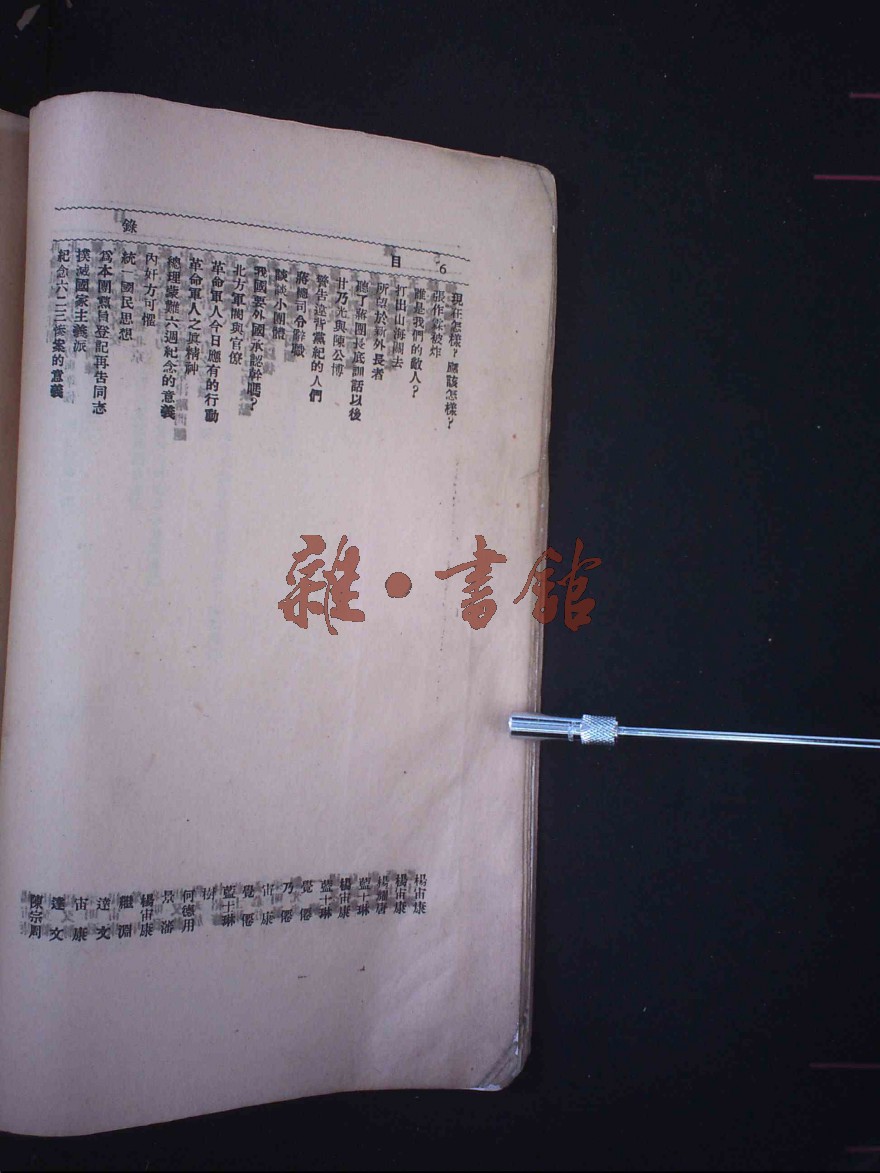 6
目
錄
現在怎樣？應該怎樣？ 楊宙康
張作霖被炸 楊宙康
誰是我們的敵人？
打出山海關去 藍十琳
所望於新外長者 楊宙康
聽了蔣團長底訓話以後 藍十琳
甘乃光與陳公博 覺僊
警告違背黨紀的人們 乃僊
蔣總司令辭職 宙康
談談小團體 覺僊
我國要外國承認幹嗎？ 藍十琳
北方軍閥與官僚
革命軍人今日應有的行動 何德用
革命軍人之眞精神 景
總理蒙難六週紀念的意義 楊宙康
內奸方可懼 繼淵
統一國民思想 達文
爲本團黨員登記再告同志 宙康
撲滅國家主義派 達文
紀念六二三慘案的意義 陳宗周
雜·書館